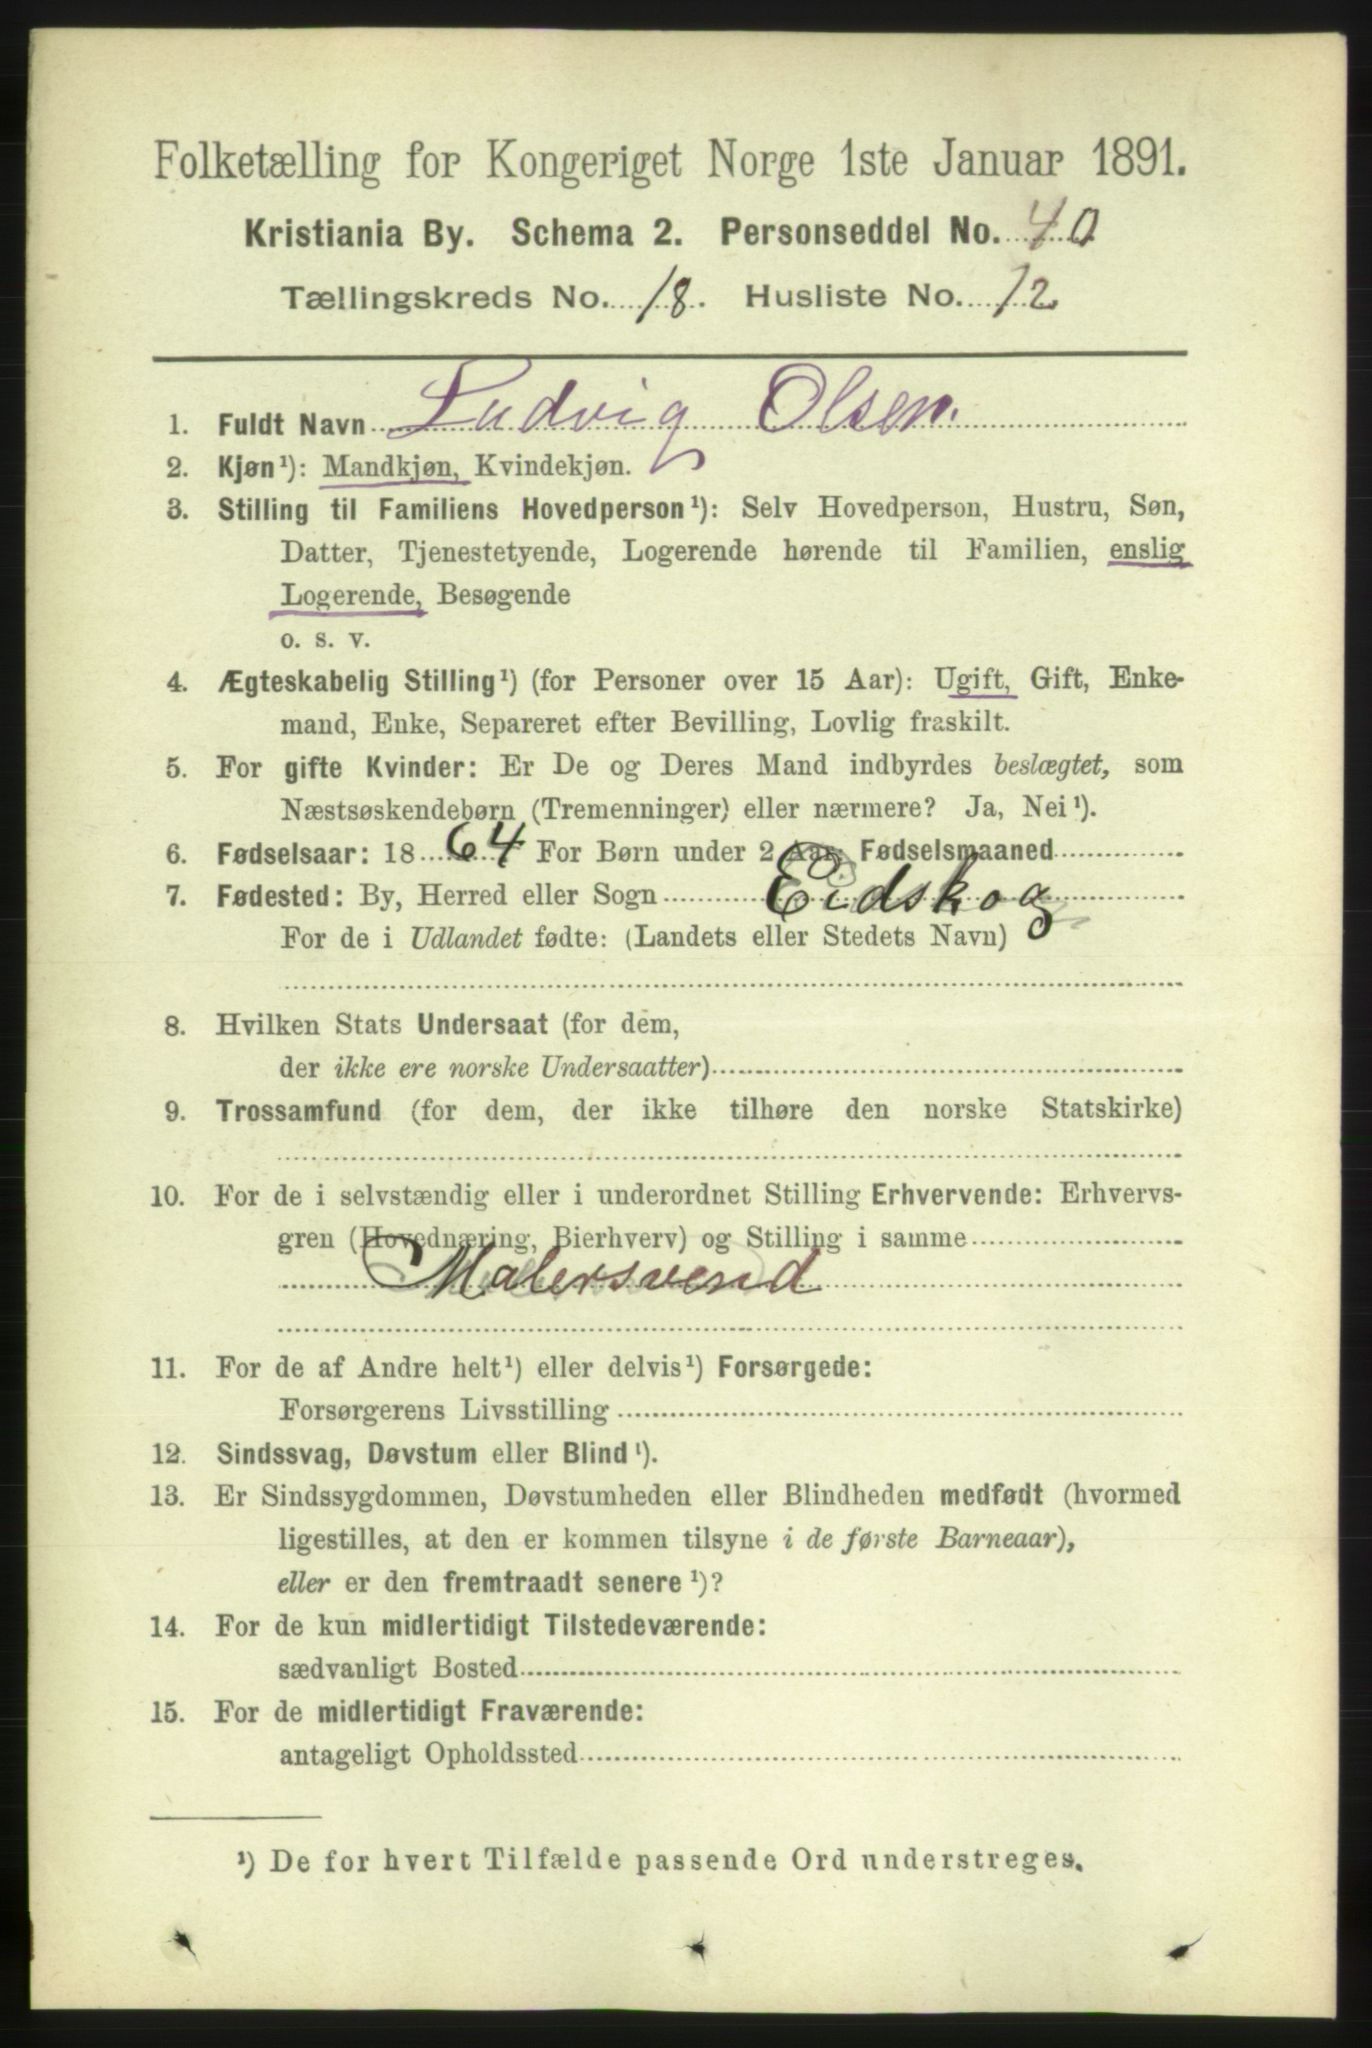 Folketælling for Kongeriget Norge 1ste Januar 1891.
Kristiania By. Schema 2. Personseddel No. 40
Tællingskreds No. 18. Husliste No. 12
1. Fuldt Navn Ludvig Olsen.
2. Kjøn¹): Mandkjøn, Kvindekjøn.
3. Stilling til Familiens Hovedperson¹): Selv Hovedperson, Hustru, Søn,
Datter, Tjenestetyende, Logerende hørende til Familien, enslig
Logerende, Besøgende
o. s. v.
4. Ægteskabelig Stilling¹) (for Personer over 15 Aar): Ugift, Gift, Enke-
mand, Enke, Separeret efter Bevilling, Lovlig fraskilt.
5. For gifte Kvinder: Er De og Deres Mand indbyrdes beslægtet, som
Næstsøskendebørn (Tremenninger) eller nærmere? Ja, Nei¹).
6. Fødselsaar: 1864 For Børn under 2 Aar: Fødselsmaaned
7. Fødested: By, Herred eller Sogn Eidskog
For de i Udlandet fødte: (Landets eller Stedets Navn)
8. Hvilken Stats Undersaat (for dem,
der ikke ere norske Undersaatter)
9. Trossamfund (for dem, der ikke tilhøre den norske Statskirke)
10. For de i selvstændig eller i underordnet Stilling Erhvervende: Erhvervs-
gren (Hovednæring, Bierhverv) og Stilling i samme
Malersvend
11. For de af Andre helt¹) eller delvis¹) Forsørgede:
Forsørgerens Livsstilling
12. Sindssvag, Døvstum eller Blind¹).
13. Er Sindssygdommen, Døvstumheden eller Blindheden medfødt (hvormed
ligestilles, at den er kommen tilsyne i de første Barneaar),
eller er den fremtraadt senere¹)?
14. For de kun midlertidigt Tilstedeværende:
sædvanligt Bosted
15. For de midlertidigt Fraværende:
antageligt Opholdssted
¹) De for hvert Tilfælde passende Ord understreges.